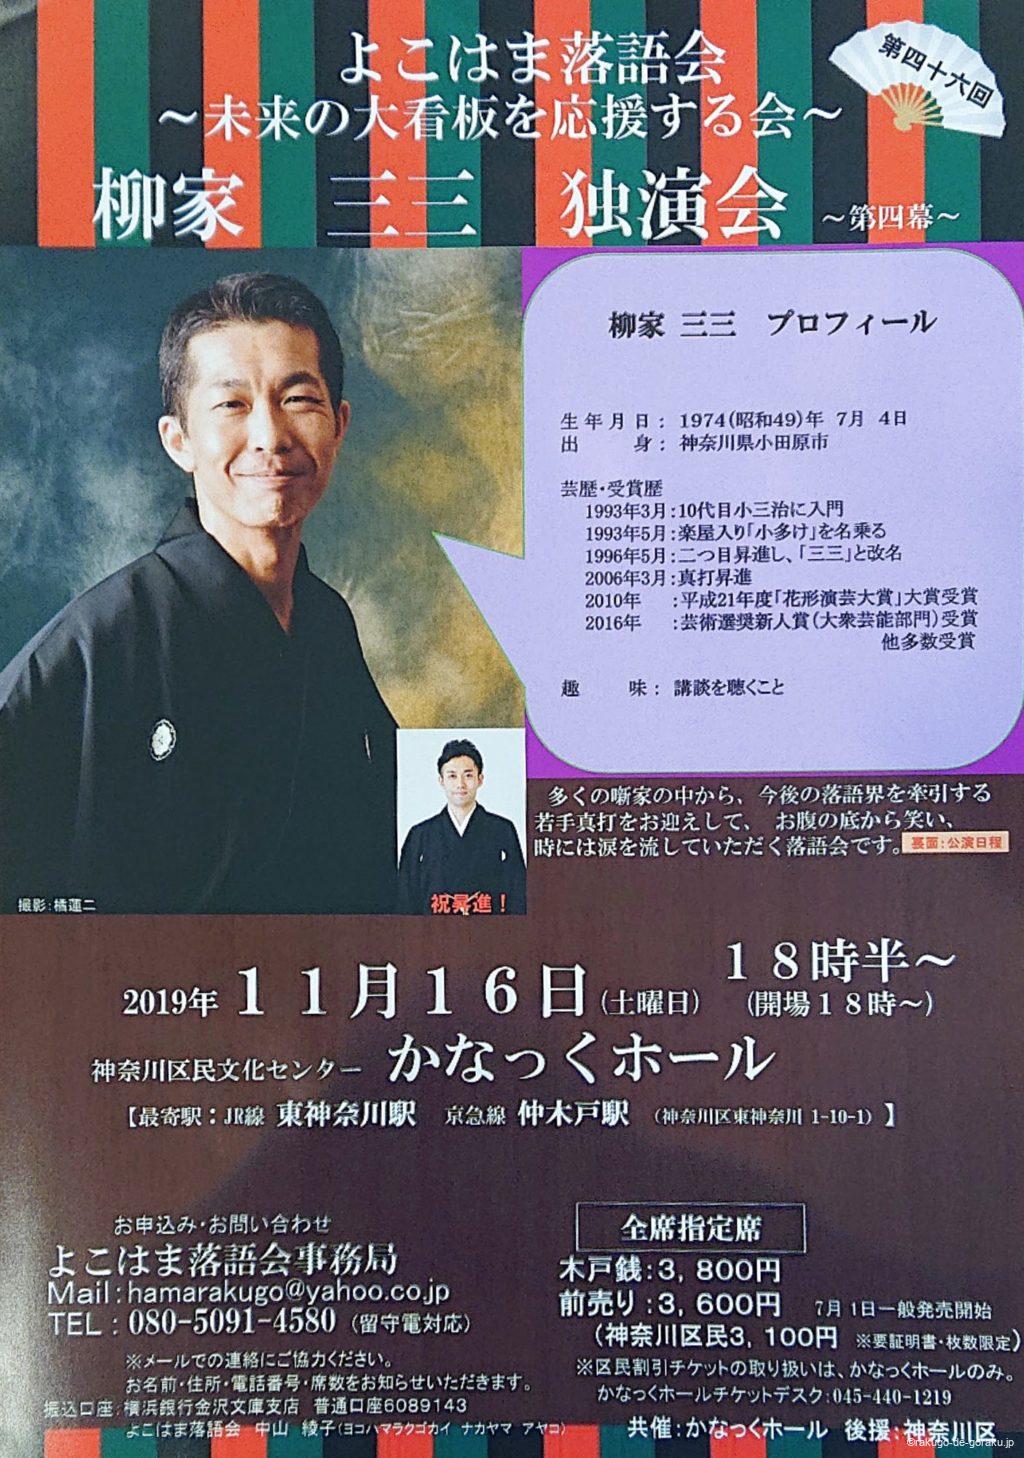 第四十六回
よこはま落語会
～未来の大看板を応援する会～
柳家 三三 独演会 ～第四幕～
柳家 三三 プロフィール
生年月日： 1974(昭和49)年 7月 4日
出 身： 神奈川県小田原市
芸歴・受賞歴
1993年3月：10代目小三治に入門
1993年5月：楽屋入り「小多け」を名乗る
1996年5月：二つ目昇進し、「三三」と改名
2006年3月：真打昇進
2010年 ：平成21年度「花形演芸大賞」大賞受賞
2016年 ：芸術選奨新人賞（大衆芸能部門）受賞
他多数受賞
趣 味： 講談を聴くこと
多くの噺家の中から、今後の落語界を牽引する
若手真打をお迎えして、 お腹の底から笑い、
時には涙を流していただく落語会です。
裏面：公演日程
撮影：橘蓮二
祝昇進！
2019年 １１月１６日（土曜日） １８時半～
（開場１８時～）
神奈川区民文化センター かなっくホール
【最寄駅：JR線 東神奈川駅 京急線 仲木戸駅 （神奈川区東神奈川 1-10-1） 】
お申込み・お問い合わせ
よこはま落語会事務局
Mail：hamarakugo@yahoo.co.jp
TEL：080-5091-4580（留守電対応）
※メールでの連絡にご協力ください。
お名前・住所・電話番号・席数をお知らせいただきます。
振込口座：横浜銀行金沢文庫支店 普通口座6089143
よこはま落語会 中山 綾子（ヨコハマラクゴカイ ナカヤマ アヤコ）
全席指定席
木戸銭：3，800円
前売り：3，600円 7月1日一般発売開始
（神奈川区民3，100円 ※要証明書・枚数限定）
※区民割引チケットの取り扱いは、かなっくホールのみ。
かなっくホールチケットデスク：045-440-1219
共催：かなっくホール 後援：神奈川区
©rakugo-de-goraku.jp